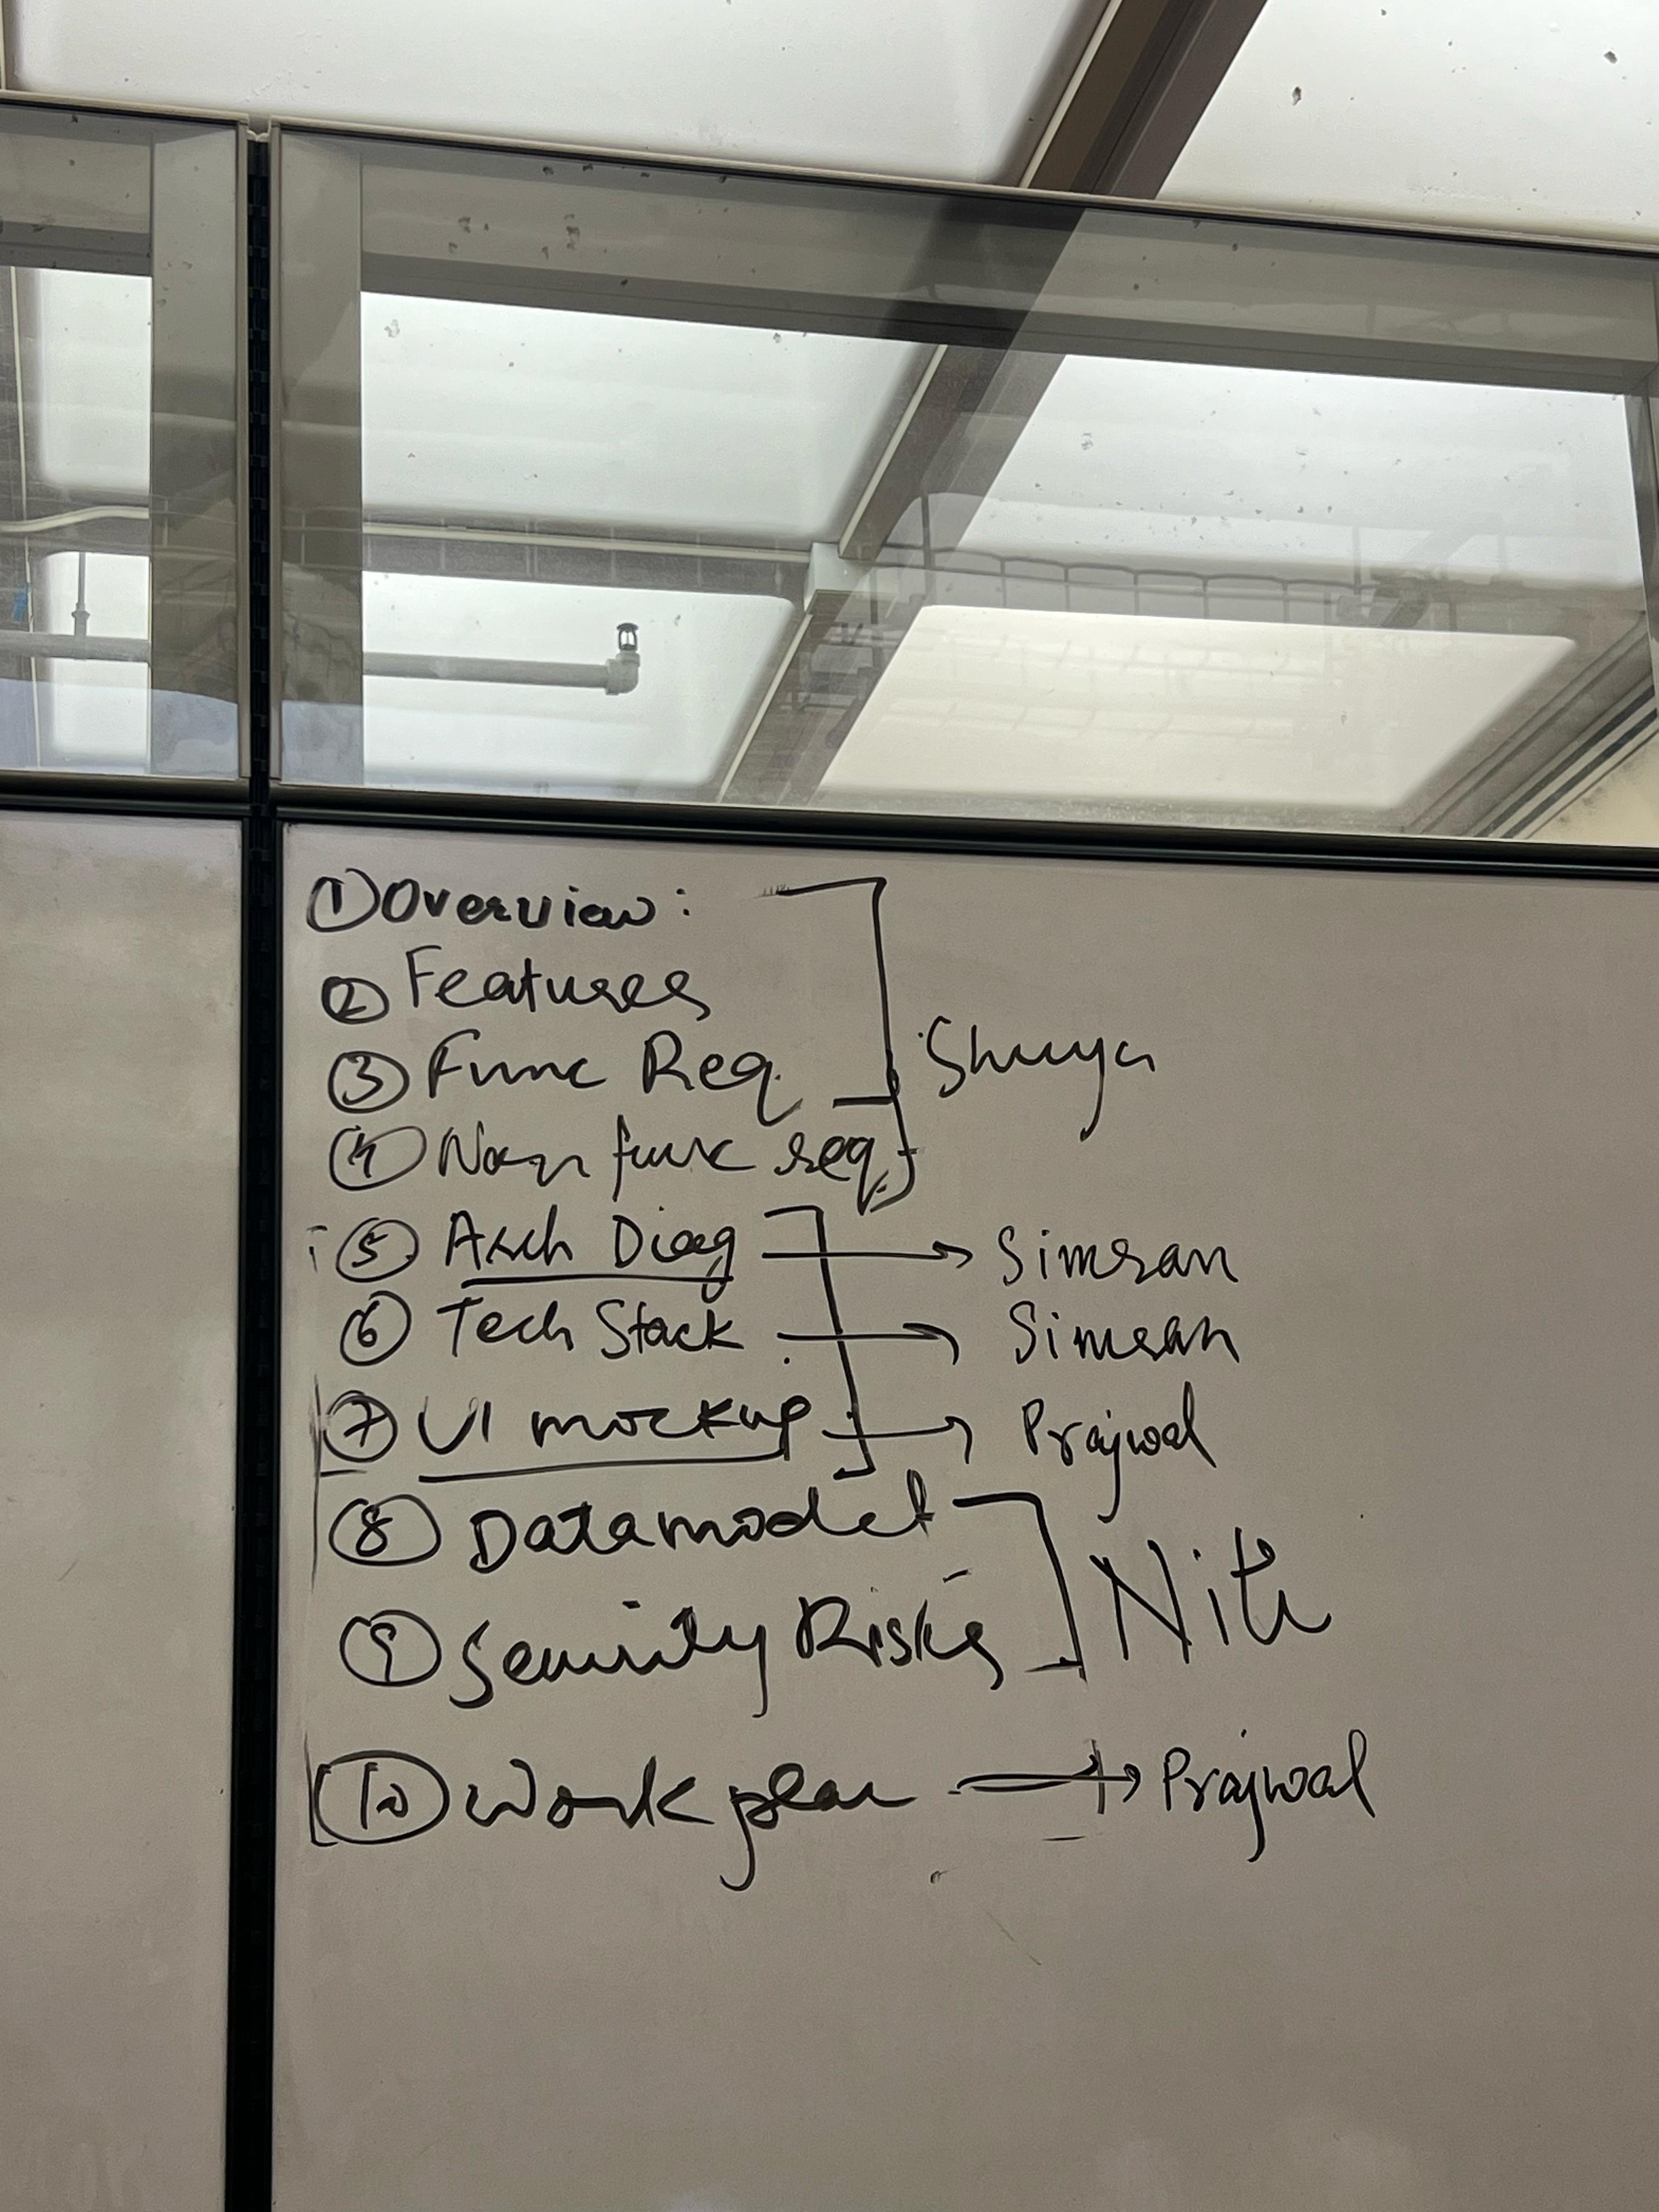 ① Overview:
② Features
③ Func Req.
④ Non func req.
Shuya
⑤ Arch Diag → Simran
⑥ Tech Stack → Simran
⑦ UI mockup → Prajwal
⑧ Datamodel
⑨ Security Risks
⑩ Work plan → Prajwal